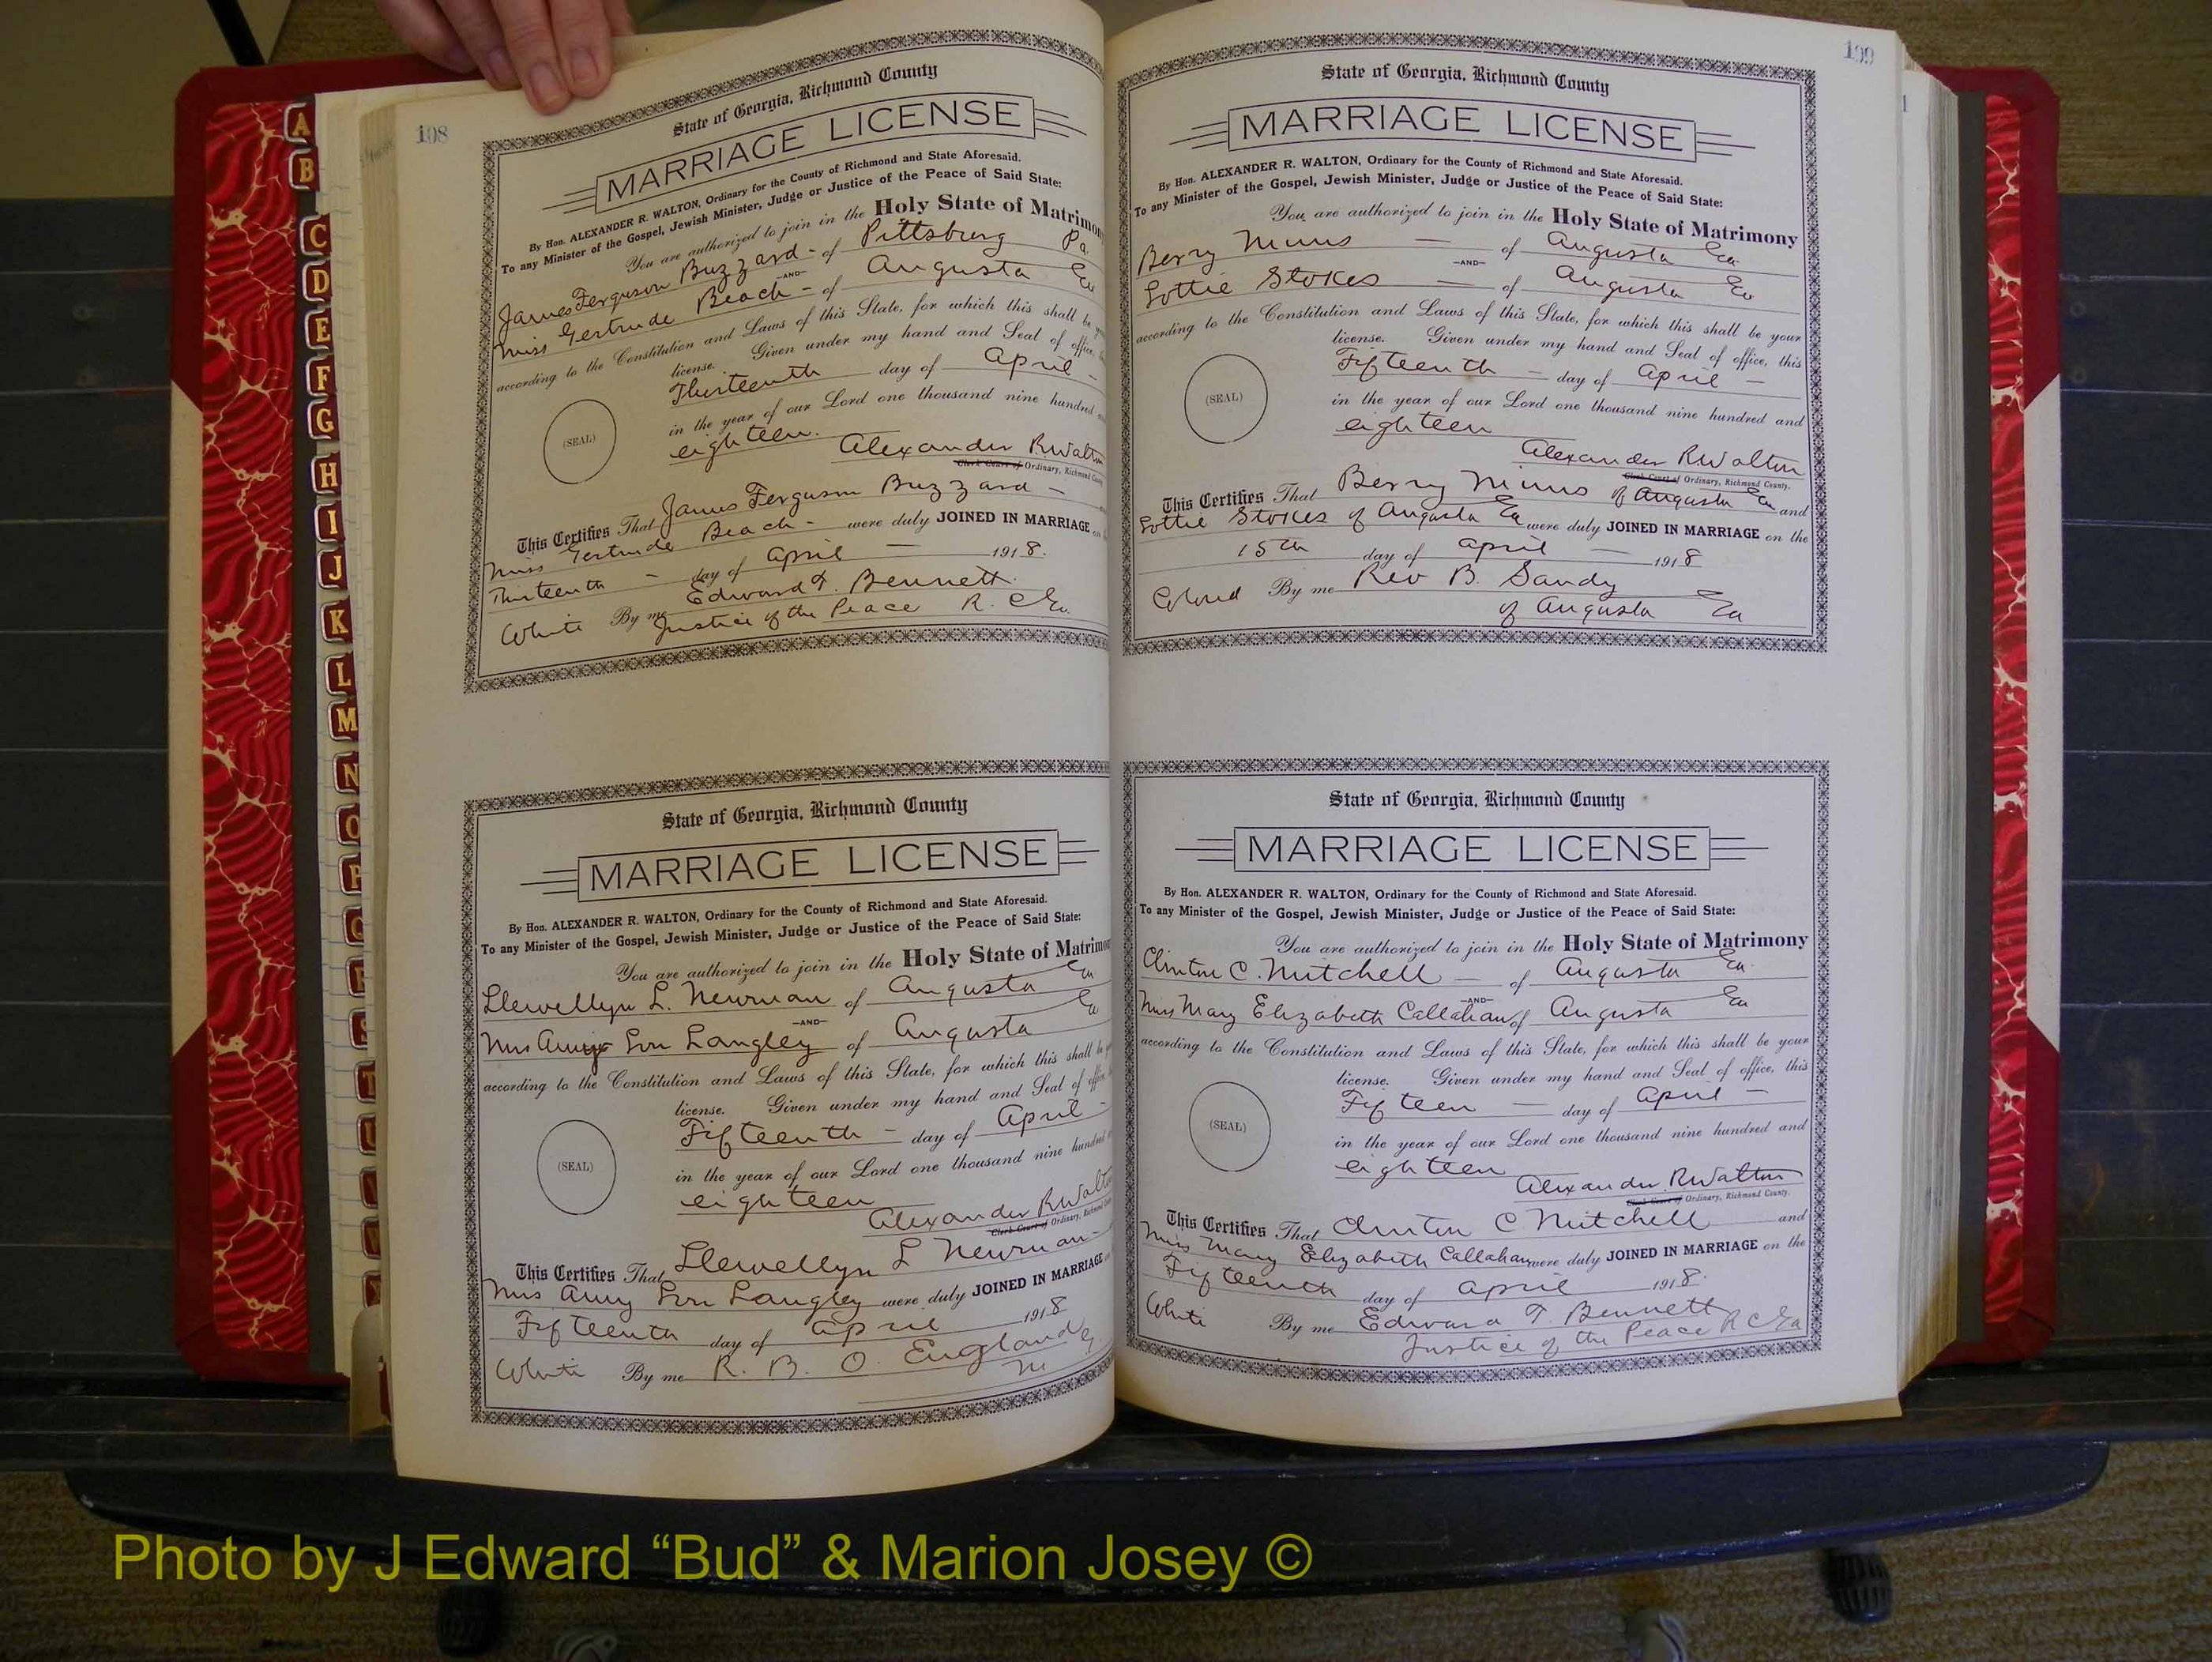 A
B
C
D
E
F
G
H
I
J
K
L
M
N
O
P
Q
R
S
T
U
V
W
X
198
State of Georgia, Richmond County
MARRIAGE LICENSE
By Hon. ALEXANDER R. WALTON, Ordinary for the County of Richmond and State Aforesaid.
To any Minister of the Gospel, Jewish Minister, Judge or Justice of the Peace of Said State:
You are authorized to join in the Holy State of Matrimon
James Ferguson Buzzard - of Pittsburg Pa.
-AND-
Miss Gertrude Beach - of Augusta Ga
according to the Constitution and Laws of this State, for which this shall be
license. Given under my hand and Seal of office,
Thirteenth day of April -
(SEAL)
in the year of our Lord one thousand nine hundred
eighteen. Alexander R Walton
Clerk Court of Ordinary, Richmond County
This Certifies That James Ferguson Buzzard -
Miss Gertrude Beach - were duly JOINED IN MARRIAGE on
Thirteenth - day of April - 1918.
White By me Edward T. Bennett
Justice of the Peace R. C Ga.
State of Georgia, Richmond County
MARRIAGE LICENSE
By Hon. ALEXANDER R. WALTON, Ordinary for the County of Richmond and State Aforesaid.
To any Minister of the Gospel, Jewish Minister, Judge or Justice of the Peace of Said State:
You are authorized to join in the Holy State of Matrimon
Llewellyn L. Newman of Augusta Ga
-AND-
of Augusta Ga
Langley
according to the Constitution and Laws of this State, for which this shall be
license. Given under my hand and Seal of office,
Fifteenth - day of April -
(SEAL)
in the year of our Lord one thousand nine hundred
eighteen
Alexander R Walton
Clerk Court of Ordinary, Richmond
This Certifies That Llewellyn L Newman -
Amy Langley were duly JOINED IN MARRIAGE
Fifteenth day of April 1918
White By me R. B. O. England
199
State of Georgia, Richmond County
MARRIAGE LICENSE
By Hon. ALEXANDER R. WALTON, Ordinary for the County of Richmond and State Aforesaid.
To any Minister of the Gospel, Jewish Minister, Judge or Justice of the Peace of Said State:
You are authorized to join in the Holy State of Matrimony
Berry Nims - of Augusta Ga
-AND-
Lottie Stokes - of Augusta Ga
according to the Constitution and Laws of this State, for which this shall be your
license. Given under my hand and Seal of office, this
Fifteenth - day of April -
(SEAL)
in the year of our Lord one thousand nine hundred and
eighteen
Alexander R Walton
Clerk Court of Ordinary, Richmond County.
This Certifies That Berry Nims of Augusta Ga and
Lottie Stokes of Augusta Ga were duly JOINED IN MARRIAGE on the
15th day of April - 1918
Colored By me Rev B. Sandy
of Augusta Ga
State of Georgia, Richmond County
MARRIAGE LICENSE
By Hon. ALEXANDER R. WALTON, Ordinary for the County of Richmond and State Aforesaid.
To any Minister of the Gospel, Jewish Minister, Judge or Justice of the Peace of Said State:
You are authorized to join in the Holy State of Matrimony
Clinton C. Mitchell - of Augusta Ga.
-AND-
Miss Mary Elizabeth Callahan of Augusta Ga
according to the Constitution and Laws of this State, for which this shall be your
license. Given under my hand and Seal of office, this
Fifteen - day of April -
(SEAL)
in the year of our Lord one thousand nine hundred and
eighteen
Alexander R Walton
Clerk Court of Ordinary, Richmond County.
This Certifies That Clinton C Mitchell and
Miss Mary Elizabeth Callahan were duly JOINED IN MARRIAGE on the
Fifteenth day of April 1918.
White By me Edward T. Bennett
Justice of the Peace R C Ga
Photo by J Edward “Bud” & Marion Josey ©